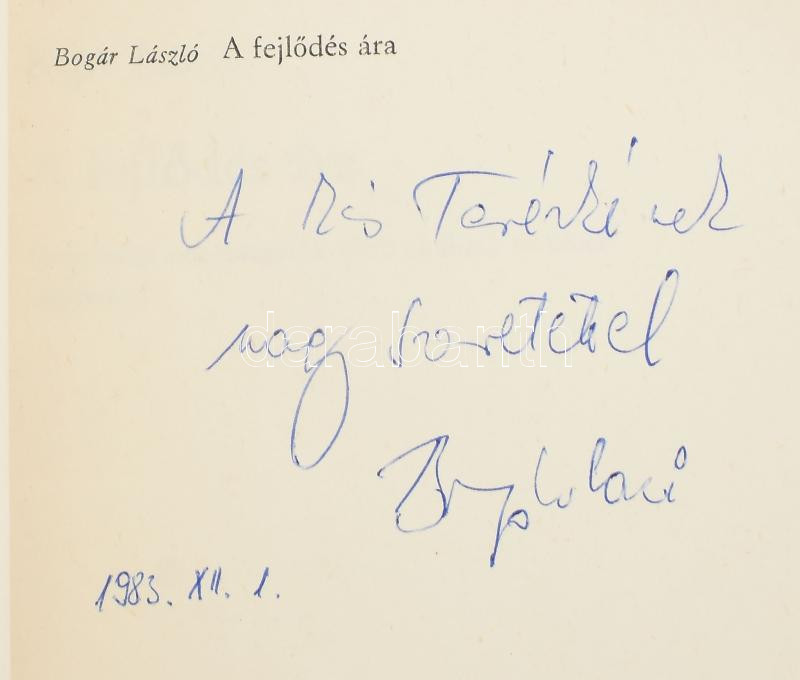 Bogár László A fejlődés ára
A Kis Terézkének
nagy szeretettel
Laci
1983. XII. 1.
darabanth